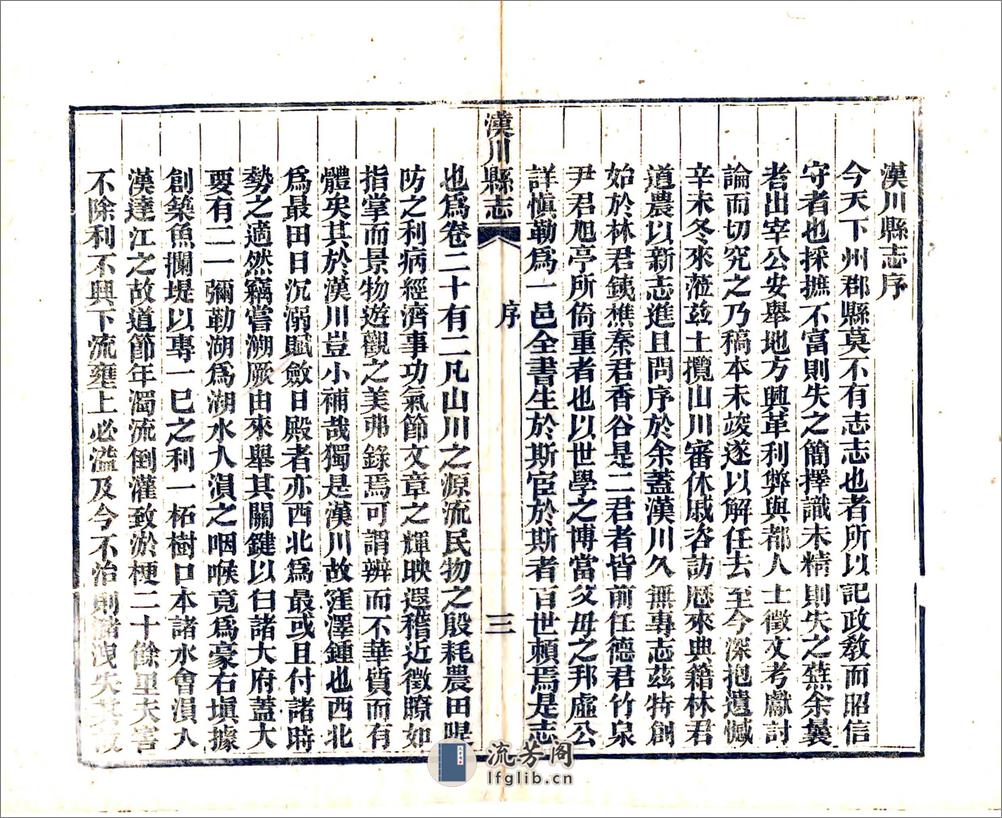 漢川縣志序
今天下州郡縣莫不有志志也者所以記政教而昭信
守者也採摭不富則失之簡擇識未精則失之蕪余曩
者出宰公安舉地方興革利弊與都人士徵文考獻討
論而切究之乃稿本未竣遂以解任去至今深抱遺憾
辛未冬來蒞茲土攬山川審休戚咨訪歷來典籍林君
道農以新志進且問序於余蓋漢川久無專志茲特創
始於林君鉄樵秦君香谷是二君者皆前任德君竹泉
尹君旭亭所倚重者也以世學之博當父母之邦虛公
詳慎勒為一邑全書生於斯宦於斯者百世賴焉是志
漢川縣志
序
三
也為卷二十有二凡山川之源流民物之殷耗農田隄
防之利病經濟事功氣節文章之輝映遐稽近徵瞭如
指掌而景物遊觀之美弗錄焉可謂辨而不華質而有
體矣其於漢川豈小補哉獨是漢川故窪澤鍾也西北
為最田日沉溺賦斂日殿者亦西北為最或且付諸時
勢之適然竊嘗溯厥由來舉其關鍵以白諸大府蓋大
要有二一彌勒湖為湖水入溳之咽喉竟為豪右填據
創築魚攔堤以專一已之利一柘樹口本諸水會溳入
漢達江之故道節年濁流倒灌致淤梗二十餘里夫害
不除利不興下流壅上必溢及今不治則瀦洩失其
流芳阁
lfglib.cn